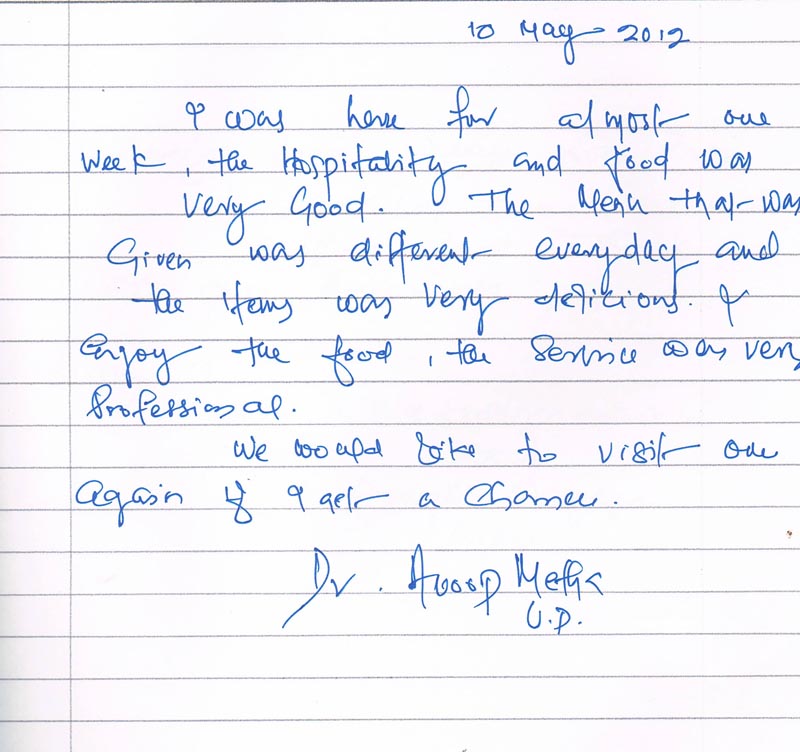 10 May 2012
I was here for almost one
week, the Hospitality and food was
very Good. The Menu that was
Given was different everyday and
the items was very delicious. I
Enjoy the food, the Service was very
Professional.
We would like to visit one
Again if I get a Chance.
Dr. Anoop Mehta
U.P.